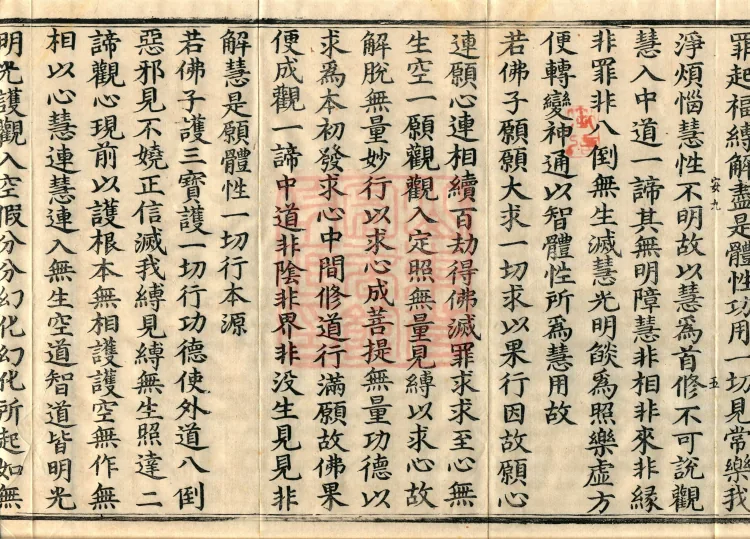 罪起福縛解盡是體性功用一切見常樂我
安九
五
淨煩惱慧性不明故以慧爲首修不可說觀
慧入中道一諦其無明障慧非相非來非緣
非罪非八倒無生滅慧光明燄爲照樂虛方
便轉變神通以智體性所爲慧用故
若佛子願願大求一切求以果行因故願心
連願心連相續百劫得佛滅罪求求至心無
生空一願觀觀入定照無量見縛以求心故
解脫無量妙行以求心成菩提無量功德以
求爲本初發求心中間修道行滿願故佛果
便成觀一諦中道非陰非界非没生見見非
解慧是願體性一切行本源
若佛子護三寶護一切行功德使外道八倒
惡邪見不嬈正信滅我縛見縛無生照達二
諦觀心現前以護根本無相護護空無作無
相以心慧連慧連入無生空道智道皆明光
明光護觀入空假分分幻化幻化所起如無